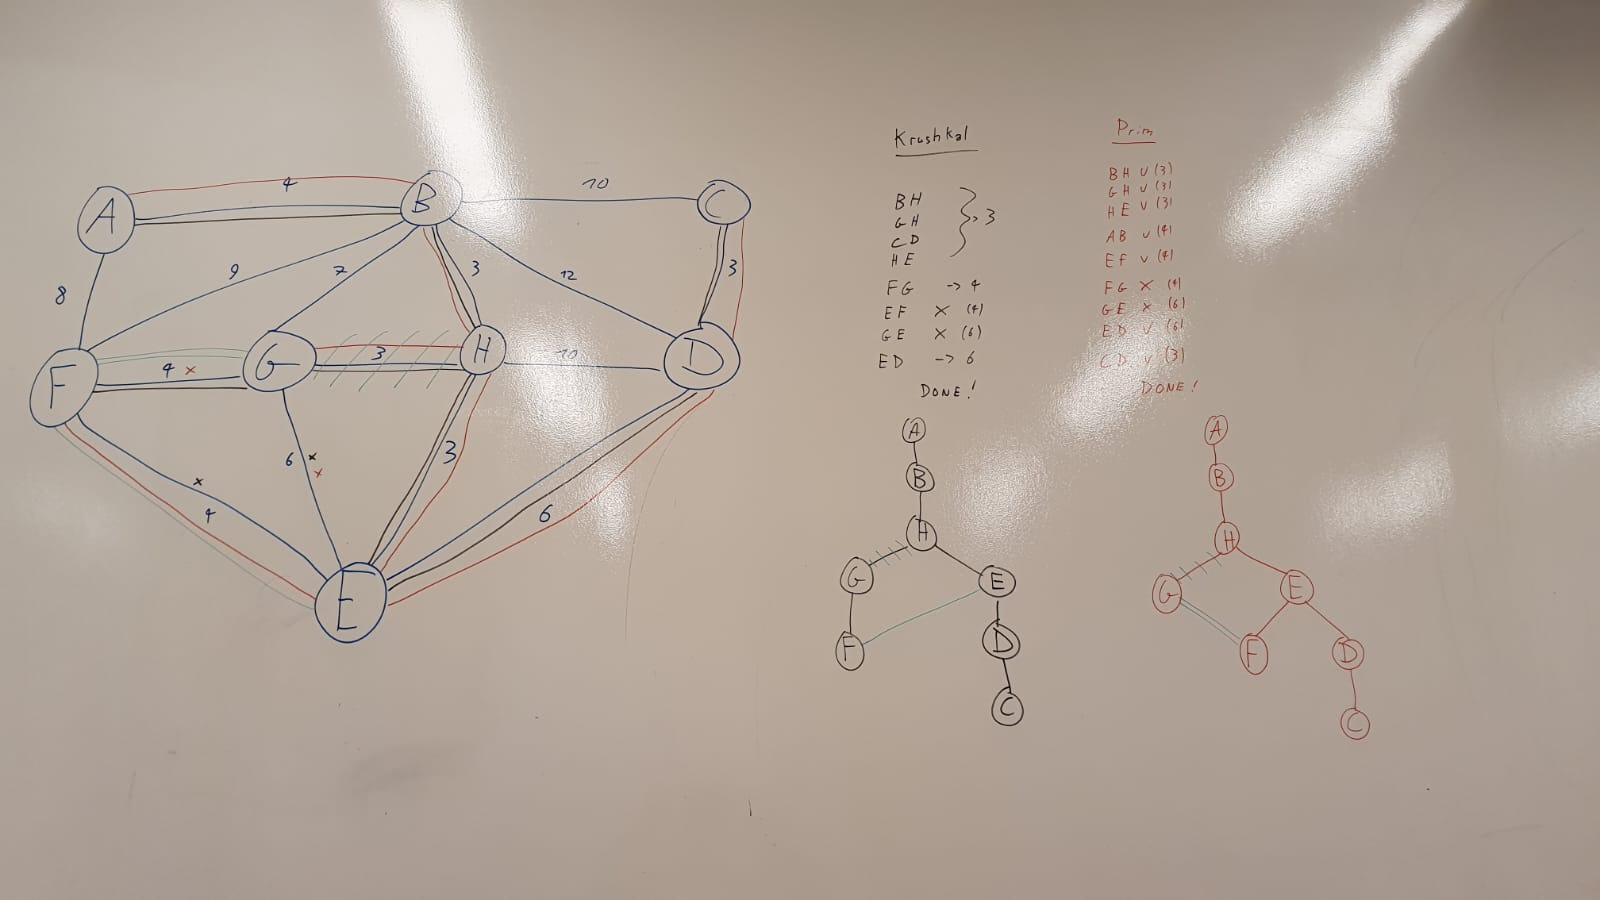 A
B
C
F
G
H
D
E
4
10
8
9
7
3
12
3
4 x
3
10
6 x
x
x
4
3
6
Krushkal
BH
GH
CD
HE
3
FG -> 4
EF X (4)
GE X (6)
ED -> 6
DONE!
A
B
H
G
E
F
D
C
Prim
BH v (3)
GH v (3)
HE v (3)
AB v (4)
EF v (4)
FG X (4)
GE X (6)
ED v (6)
CD v (3)
DONE!
A
B
H
G
E
F
D
C